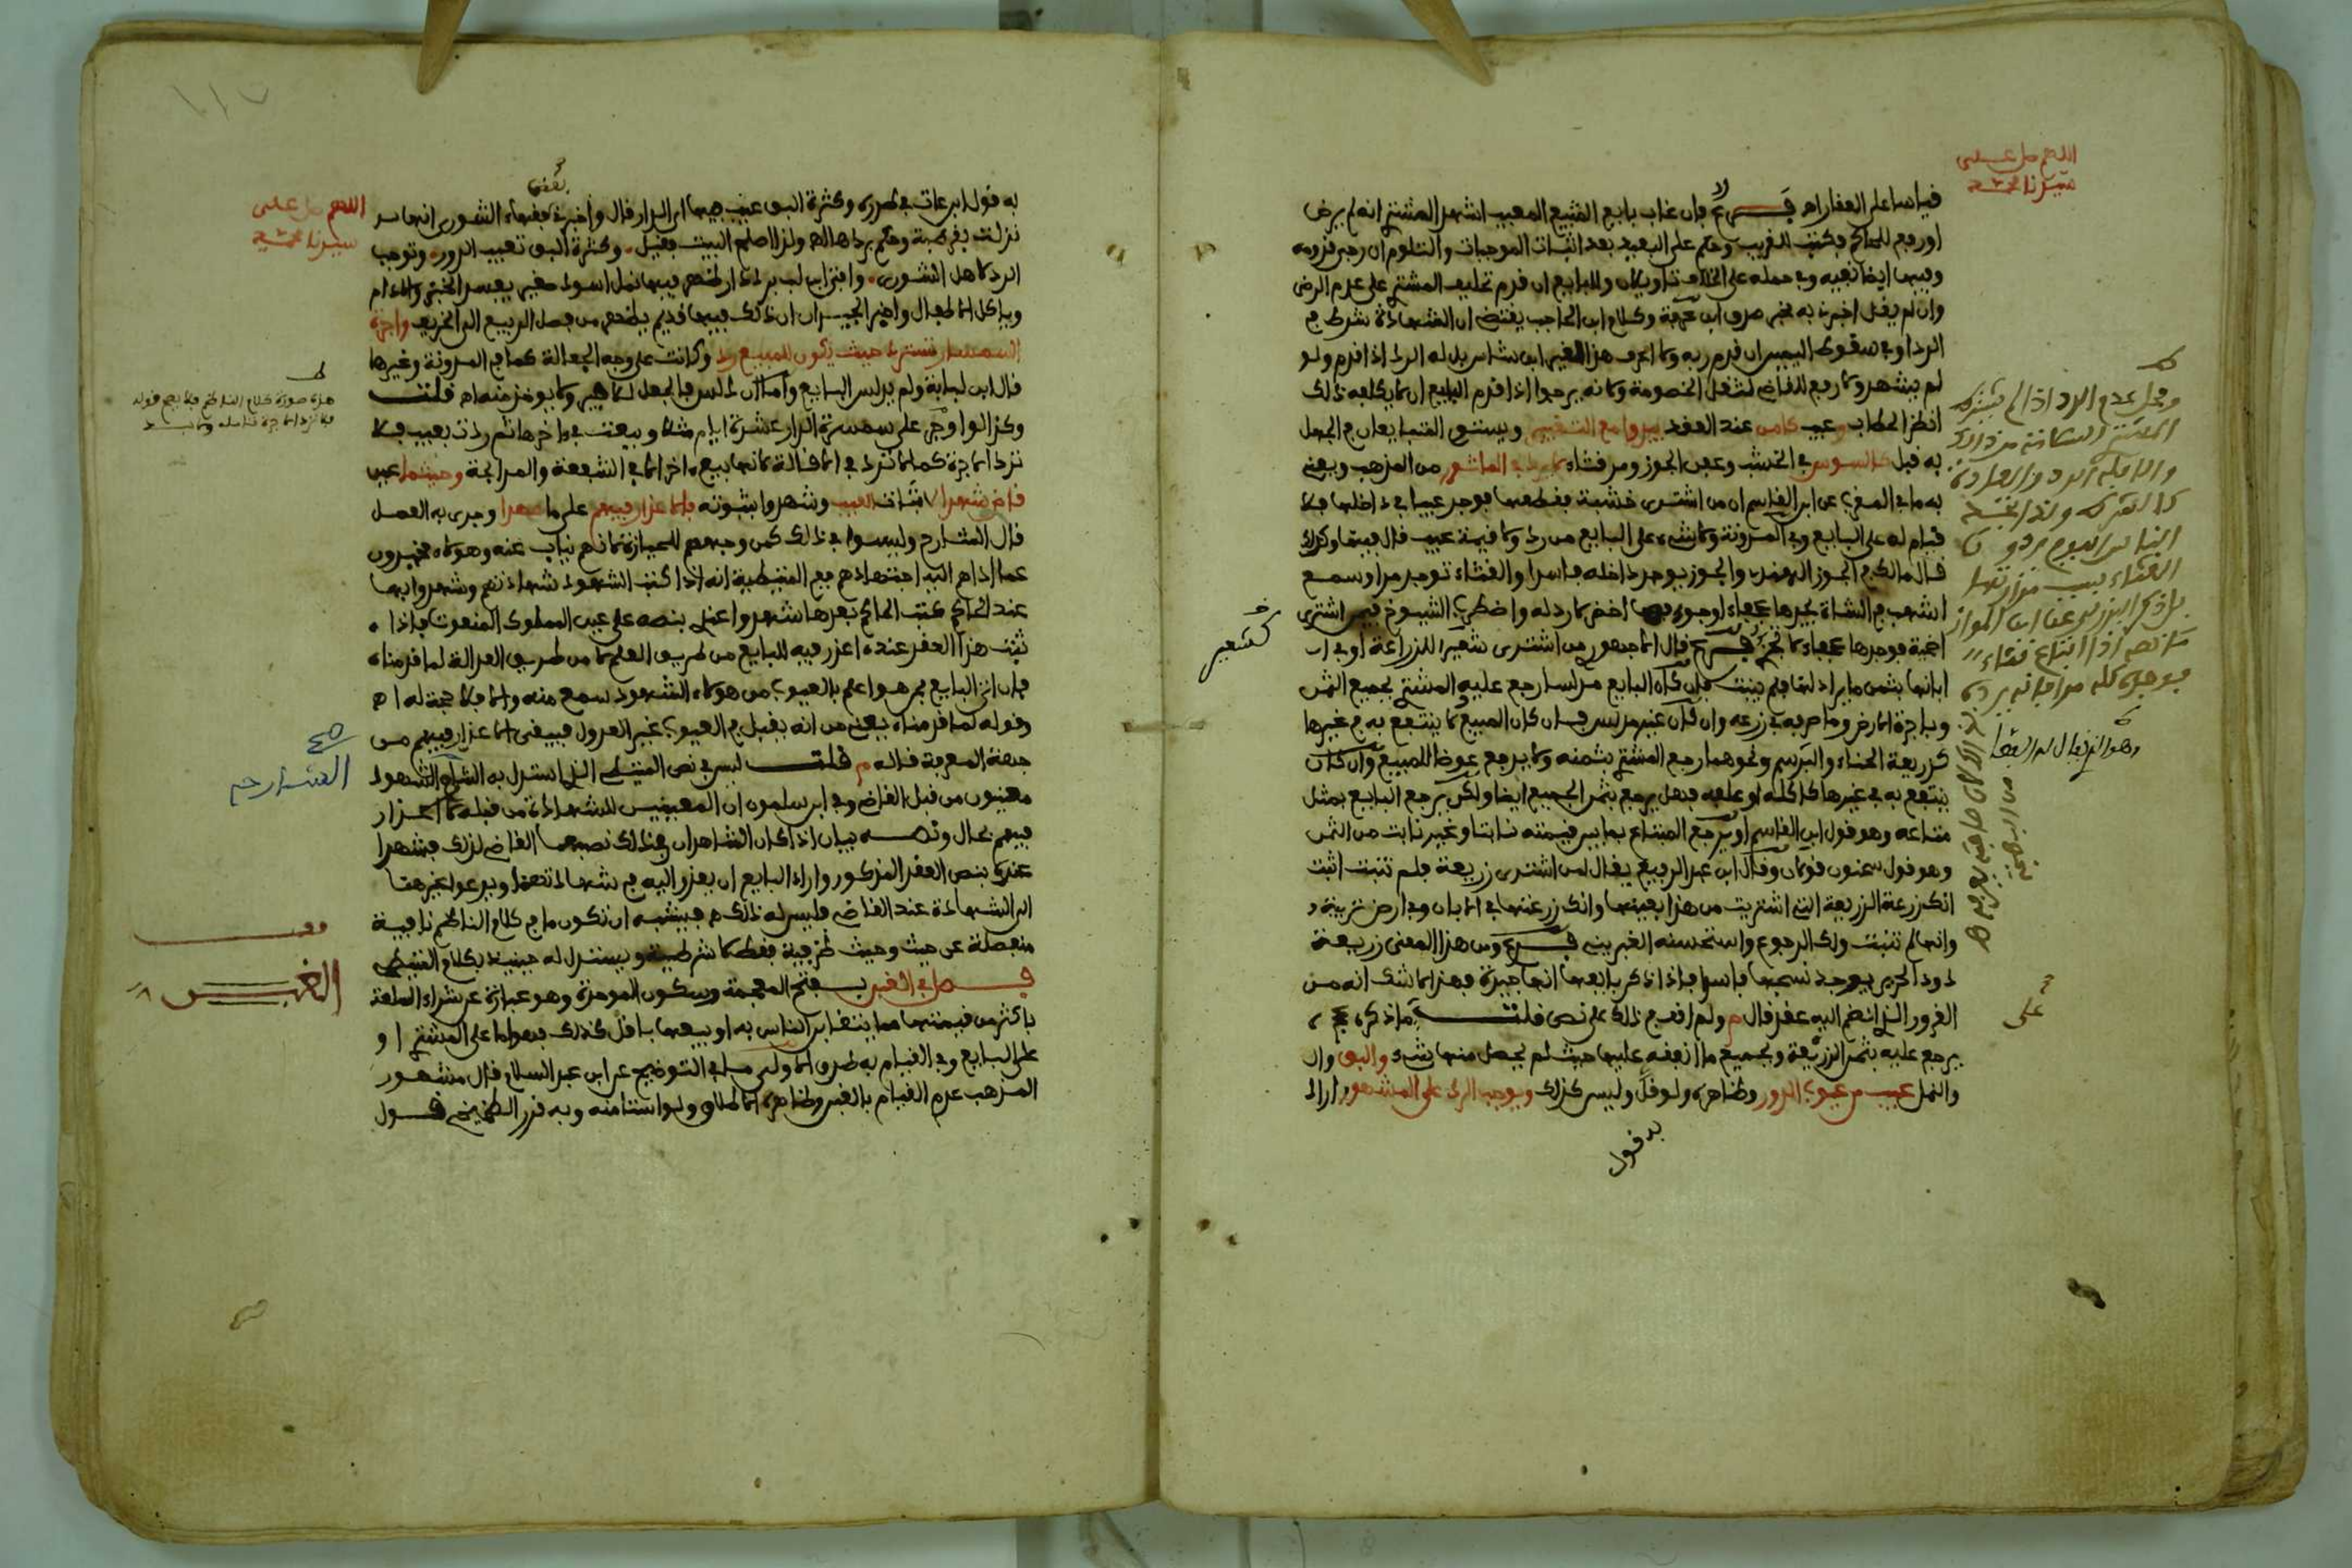 اللهم صل على
سيدنا محمد
قياسا على العقار اه فرع فإن غاب بايع الشيء المعيب اشهد المشتري انه لم يرض
او رفع للحاكم فكتب للقريب وحكم على البعيد بعد اثبات الموجبات والتلوم ان رجى قدومه
وفيها ايضا نفيه وفي حمله على الخلاف تاويلان وللبايع ان قدم تحليف المشتري على عدم الرضى
وان لم يقل اخبرت به مخبر صدق ابن عرفة وكلام ابن الحاجب يقتضي ان الشهادة شرط في
الرد او في سقوط اليمين ان قدم ربه ولا اعرف هذا لغير ابن شاس بل له الرد اذا قدم ولو
لم يشهد ولا رفع للقاضي لثقل الخصومة ولانه يرجوا اذا قدم البايع ان لا يكلفه ذلك
انظر الحطاب وعيب كامن عند العقد يبدوا مع التغيير ويستوى المتبايعان في الجهل
به قبل كالسوس في الخشب وعفن الجوز ومر قثاء لا يرد في المشهور من المذهب ويعني
به ما في المفيد عن ابن القاسم ان من اشترى خشبة فقطعها فوجد عيبا في داخلها فلا
قيام له على البايع وفي المدونة ولا شيء على البايع من رد ولا قيمة عيب قال فيها وكذلك
قال مالك في الجوز الهندي والجوز يوجد داخله فاسدا والقثاء توجد مرة وسمع
اشهب في الشاة يجدها عجفاء او جوفها اخضر لا رد له واضطرب الشيوخ فيمن اشترى
اضحية فوجدها عجفاء لا تجزئ فرع قال الجمهور من اشترى شعيرا للزراعة او في
ابانها بثمن ما يراد لها فلم ينبت فإن كان البايع مدلسا رجع عليه المشتري بجميع الثمن
وباجرة الارض وما صرفه في زرعه وان كان غير مدلس فإن كان المبيع لا ينتفع به في غيرها
كزريعة الحناء والبرسم ونحوهما رجع المشتري بثمنه ولا يرجع عوضا للمبيع وان كان
ينتفع به في غيرها كاكله او علفه فهل يرجع بثمن الجميع ايضا ولكن يرجع البايع بمثل
متاعه وهو قول ابن القاسم او يرجع المبتاع بما بين قيمته نابتا وغير نابت من الثمن
وهو قول سحنون قولان وقال ابن عبد الرفيع يقال لمن اشترى زريعة فلم تنبت اثبت
انك زرعت الزريعة التي اشتريت من هذا بعينها وانك زرعتها في الابان وفي ارض ثرية
وانها لم تنبت ولك الرجوع واستحسنه الغبريني فرع ومن هذا المعنى زريعة
دود الحرير يوجد نسجها فاسدا فاذا ذكر بايعها انها جيدة فهذا لا شك انه من
الغرور الذي انضم اليه عقد قال م ولم اقف في ذلك على نص قلت ما ذكره
يرجع عليه بثمن الزريعة وبجميع ما انفقه عليها حيث لم يحصل منها شيء والبق وال
والنمل عيب من عيوب الدور وظاهره ولو قل وليس كذلك ويوجب الرد على المشهور اراد
به قول
كشعير
ومحل عدم الرد اذا لم يشترط
المشتري السلامة من ذلك
والا فله الرد والعادة
كالشرط
على
١١٧
اللهم صل على
سيدنا محمد
به قول ابن عات في طرره وكثرة البق عيب فيها اي الدار قال واخبرني بعض فقهاء الشورى انها
نزلت بقرطبة وحكم بردها اه ولذا اصلح البيت فقيل وكثرة البق تعيب الدور وتوجب
الرد لاهل الشورى وافتى ابن لب برد دار ظهر فيها نمل اسود صغير يفسد الخبز والادام
وياكل الاطعال واخبر الجيران ان ذلك فيها قديم يظهر من فصل الربيع الى الخريف واجرة
السمسار تسترد حيث يكون للمبيع رد وكانت على وجه الجعالة كما في المدونة وغيرها
قال ابن لبابة ولم يدلس البايع واما ان دلس فالجعل للاجير ولا يوخذ منه اه قلت
وكذا لو اوجر على سمسرة الدار عشرة ايام مثلا وبيعت في اخرها ثم ردت بعيب فلا
ترد الاجرة كما لا ترد في الاقالة لانها بيع الا في الشفعة والمرابحة وحيثما عين
قاض شهدا لاثبات العيب وشهدوا بثبوته فلا اعذار فيهم على ما عهدا وجرى به العمل
قال الشارح وليسوا في ذلك كمن وجههم للحيازة لانهم نياب عنه وهولاء مخبرون
عما اداهم اليه اجتهادهم مع المتيطية انه اذا كتب الشهود شهادتهم وشهدوا بها
عند الحاكم كتب الحاكم بعدها شهدوا عندي بنصه على عين المملوك المنعوت فاذا
ثبت هذا العقد عنده اعذر فيه للبايع من طريق العلم لا من طريق العدالة لما قدمناه
فان اتى البايع بمن هو اعلم بالعيوب من هولاء الشهود سمع منه والا فلا حجة له اه
وقوله لما قدمناه يعني من انه يقبل في العيوب غير العدول فيبقى الاعذار فيهم من
جهة المعرفة قاله م قلت ليس في نص المتيطي الذي استدل به الشارح ان الشهود
معينون من قبل القاضي وفي ابن سلمون ان المعينين للشهادة من قبله لا اعذار
فيهم بحال ونصه بيان اذا كان الشاهدان في ذلك نصبهما القاضي لذلك فشهدا
عنده بنص العقد المذكور واراد البايع ان يعذر اليه في شهادتهما ويدعو لغيرهما
الى الشهادة عند القاضي فليس له ذلك اه فيشبه ان تكون ما في كلام الناظم نافية
منفصلة عن حيث وحيث ظرفية فقط لا شرطية ويستدل له حينئذ بكلام المتيطي
فصل في الغبن بفتح المعجمة وسكون الموحدة وهو عبارة عن شراء السلعة
باكثر من قيمتها مما يتغابن الناس به او بيعها باقل كذلك فهو اما على المشتري او
على البايع وفي القيام به طرق الاولى ما في التوضيح عن ابن عبد السلام قال مشهور
المذهب عدم القيام بالغبن وظاهره الاطلاق ولو استامنه وبه قرر الطخيخي قول
هذه صورة كلام الناظم
الشارح
صح
قف
الغبن